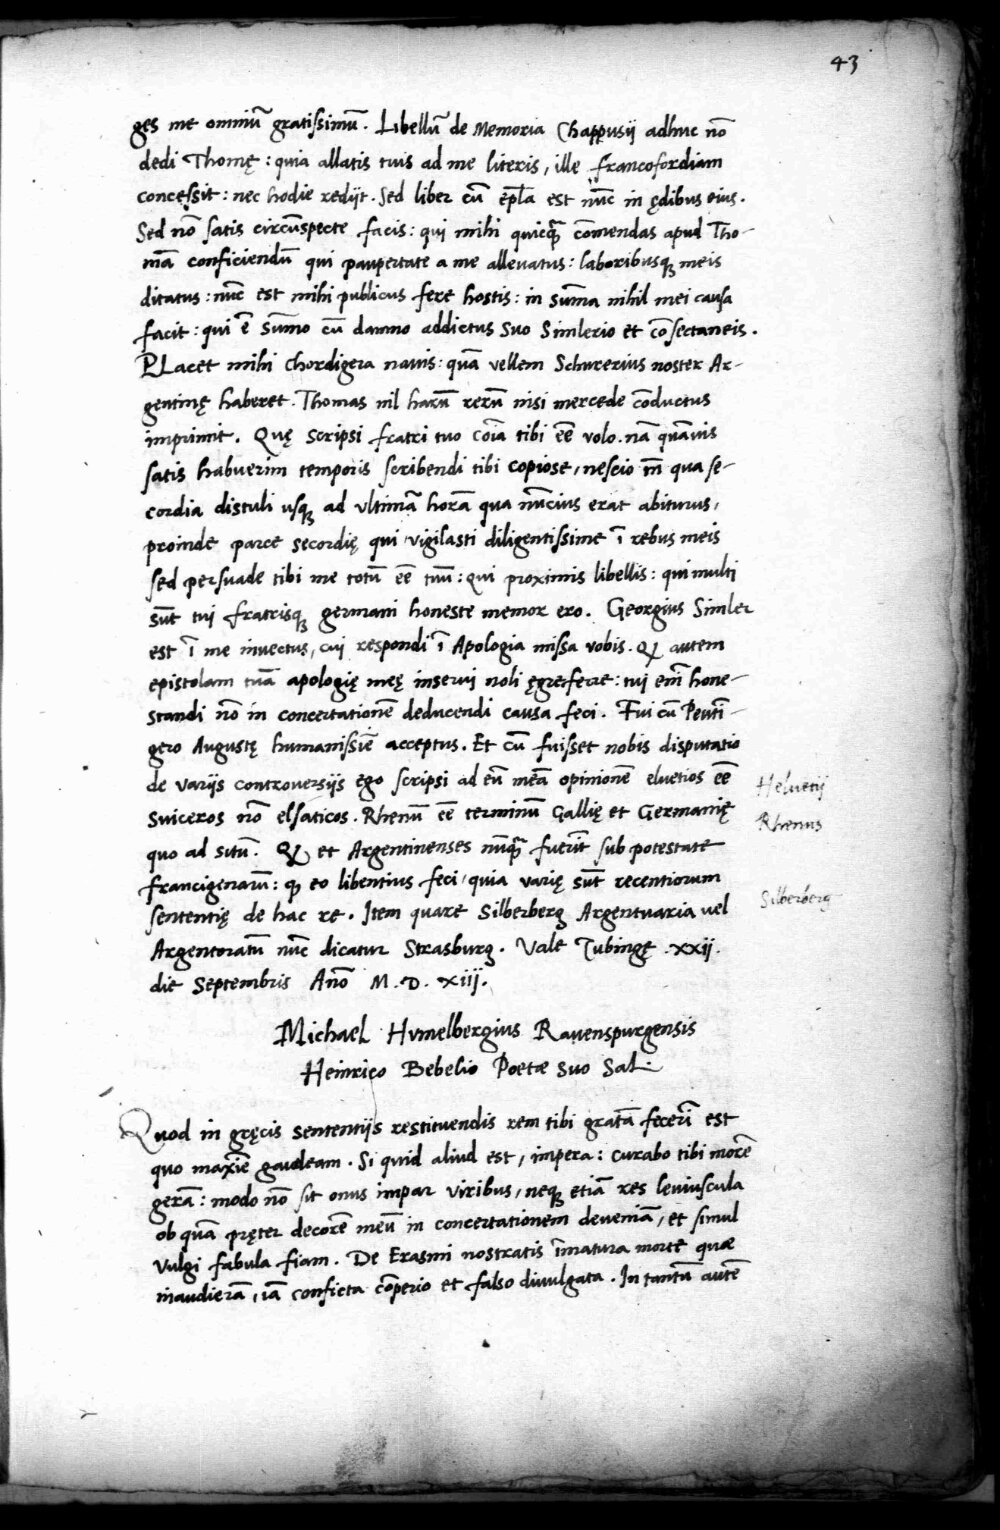 43
ges me omniũ gratissimũ. Libellũ de Memoria Chappusij adhuc nõ
dedi Thomę: quia allatis tuis ad me literis, ille francofordiam
concessit: nec hodie redijt. Sed liber cũ ep̃la est nũc in ędibus eius.
Sed nõ satis circũspecte facis: qui mihi quicq̃ cõmendas apud Tho-
mã conficiendũ qui paupertate a me alleuatus: laboribusq; meis
ditatus: nũc est mihi publicus fere hostis: in sũma nihil mei causa
facit: qui ẽ sũmo cũ damno addictus suo Simlerio et cõsectaneis.
PLacet mihi Chordigera nauis: quã vellem Schurerius noster Ar-
gentinę haberet. Thomas nil harũ rerũ nisi mercede cõductus
imprimit. Quę scripsi fratri tuo cõia tibi eẽ volo. nã quãuis
satis habuerim temporis scribendi tibi copiose, nescio m̃ qua se-
cordia distuli usq; ad vltimã horã qua nũcius erat abiturus,
proinde parce secordię qui vigilasti diligentissime ĩ rebus meis
sed persuade tibi me totũ eẽ tuũ: qui proximis libellis: qui multi
sũt tui fratrisq; germani honeste memor ero. Georgius Simler
est ĩ me inuectus, cui respondi ĩ Apologia missa vobis. Q autem
epistolam tuã apologię meę inserui noli ęgreferre: tui em̃ hone-
standi nõ in concertationẽ deducendi causa feci. Fui cũ Peuti-
gero Augustę humanissiẽ acceptus. Et cũ fuisset nobis disputatio
de varijs controuersijs ego scripsi ad eũ meã opinionẽ eluetios eẽ
Helvetij
Suiceros nõ elsaticos. Rhenũ eẽ terminũ Gallię et Germanię
Rhenus
quo ad sitũ. Q et Argentinenses nũq̃ fuerĩt sub potestate
francigenarũ: q; eo libentius feci, quia varię sũt recentiorum
Silberberg
sententię de hac re. Item quare Silberberg Argentuaria vel
Argentoratũ nũc dicatur Strasburg. Vale Tubingę .xxij.
die Septembris Añõ M.D.xiij.
Michael Hvmelbergius Rauenspurgensis
Heinrico Bebelio Poetæ suo Sal.
Quod in gręcis sententijs restituendis rem tibi gratã fecerĩ est
quo maxiẽ gaudeam. Si quid aliud est, impera: curabo tibi morẽ
gerã: modo nõ sit onus impar viribus, neq; etiã res leuiuscula
ob quã pręter decorẽ meũ in concertationem deueniã, et simul
vulgi fabula fiam. De Erasmi nostratis ĩmatura morte quæ
inaudierã, iã conficta cõperio et falso diuulgata. In tantũ autẽ